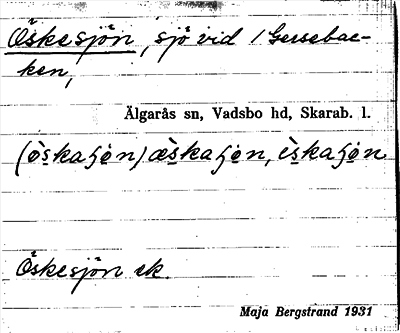 Öskesjön, sjö vid / Gersebac-
ken,
Älgarås sn, Vadsbo hd, Skarab. l.
(ö̀skaʃön) æ̀skaʃön, è̀skaʃön
Öskesjön ek.
Maja Bergstrand 1931